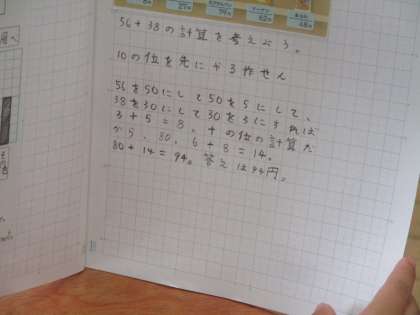 56+38の計算を考えよう。
10の位を先にする作せん
56を50にして50を5にして、
38を30にして30を3にすれば
3+5=8、十の位の計算だ
から、80、6+8=14。
80+14=94。答えは94円。